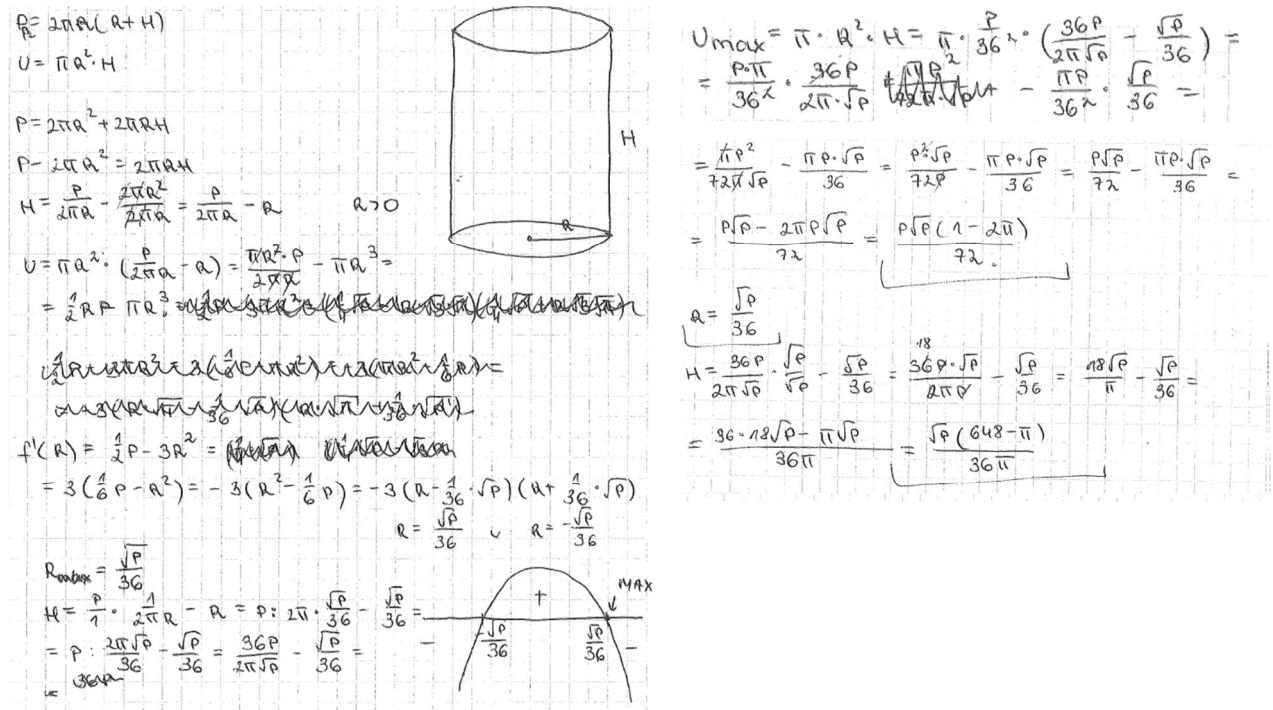 P = 2πR(R+H)
V = πR²·H
P = 2πR² + 2πRH
P - 2πR² = 2πRH
H = P/2πR - 2πR²/2πR = P/2πR - R R>0
V = πR²·(P/2πR - R) = πR²·P/2πR - πR³ =
= 1/2 RP - πR³
f'(R) = 1/2 P - 3R² =
= 3(1/6 P - R²) = -3(R² - 1/6 P) = -3(R - 1/36·√P)(R + 1/36·√P)
R = √P/36 ∪ R = -√P/36
Rmax = √P/36
H = P/1 · 1/2πR - R = P : 2π·√P/36 - √P/36 =
= P : 2π√P/36 - √P/36 = 36P/2π√P - √P/36 =
H
R
MAX
+
- -
-√P/36 √P/36
Vmax = π·R²·H = π·P/36²·(36P/2π√P - √P/36) =
= P·π/36² · 36P/2π·√P - πP/36² · √P/36 =
= πP²/72π√P - πP·√P/36 = P²·√P/72P - πP·√P/36 = P√P/72 - πP·√P/36 =
= P√P - 2πP√P/72 = P√P(1-2π)/72
R = √P/36
H = 36P/2π√P · √P/√P - √P/36 = 18 36P·√P/2πP - √P/36 = 18√P/π - √P/36 =
= 36·18√P - π√P/36π = √P(648-π)/36π